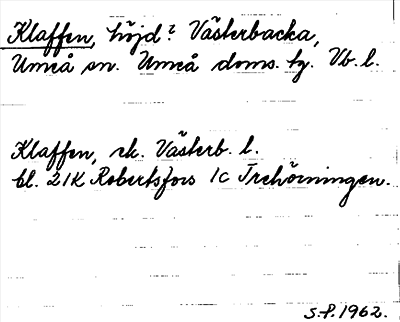 Klaffen, höjd? Västerbacka,
Umeå sn. Umeå doms. hg. Vb. l.
Klaffen, ek. Västerb. l.
bl. 21K Robertsfors 1c Trehörningen.
S.P. 1962.